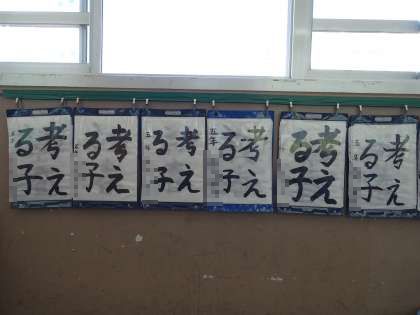 考え
る子
考え
る子
考え
る子
五年
考え
る子
五年
考え
る子
考え
る子